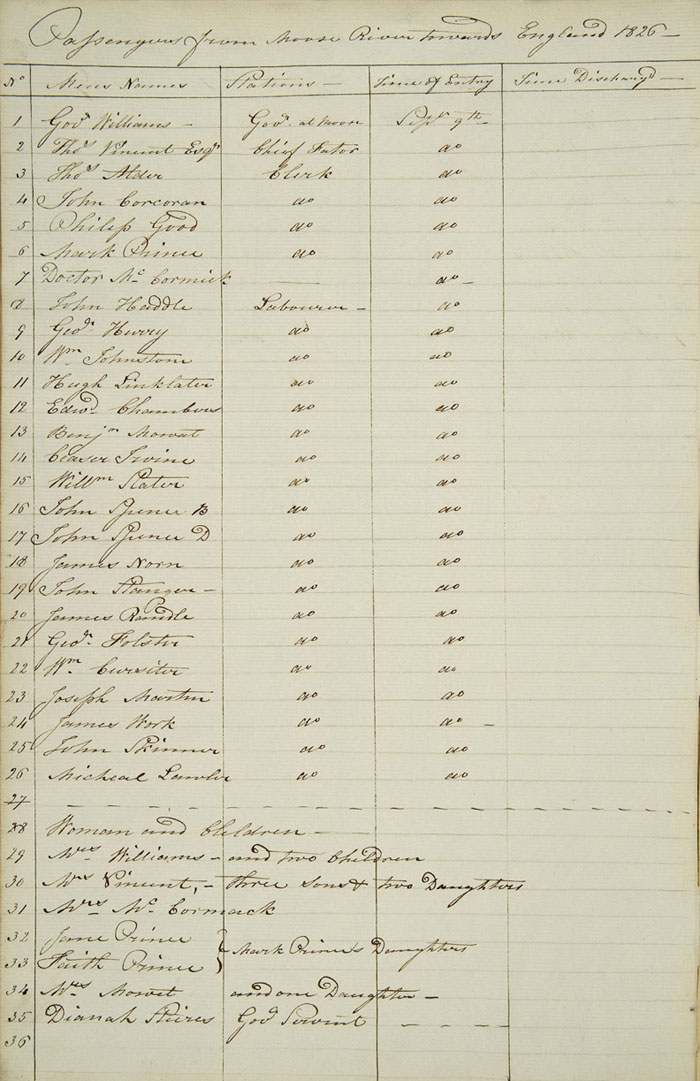 Passengers from Moose River towards England 1826 —
No Mens Names Stations — Time of Entry Time Dischargd —
1 Govr Williams — Govr at Moose Septr 9th
2 Thos Vincent Esqr Chief Fator do
3 Thos Alder Clerk do
4 John Corcoran do do
5 Philip Good do do
6 Mark Prince do do
7 Doctor Mc Cormick —— do —
8 John Haddle Labourer — do
9 Geo Herry do do
10 Wm Johnston do do
11 Hugh Linklater do do
12 Edwd Chambers do do
13 Benjmn Mowat do do
14 Ceaser Irvine do do
15 Willm Slater do do
16 John Spence B do do
17 John Spence D do do
18 James Norn do do
19 John Stanger — do do
20 James Randle do do
21 Geo Folster do do
22 Wm Cursiter do do
23 Joseph Martin do do
24 James Work do do —
25 John Skinner do do
26 Micheal Lawler do do
27 — — — — — — — — — —
28 Woman and Children —
29 Mrs Williams — and two Children
30 Mrs Vincent, — three Sons & two Daughters
31 Mrs Mc Cormack
32 Jane Prince } Mark Prince's Daughters
33 Faith Prince
34 Mrs Mowet and one Daughter —
35 Dianah Govr Servent — — — —
36